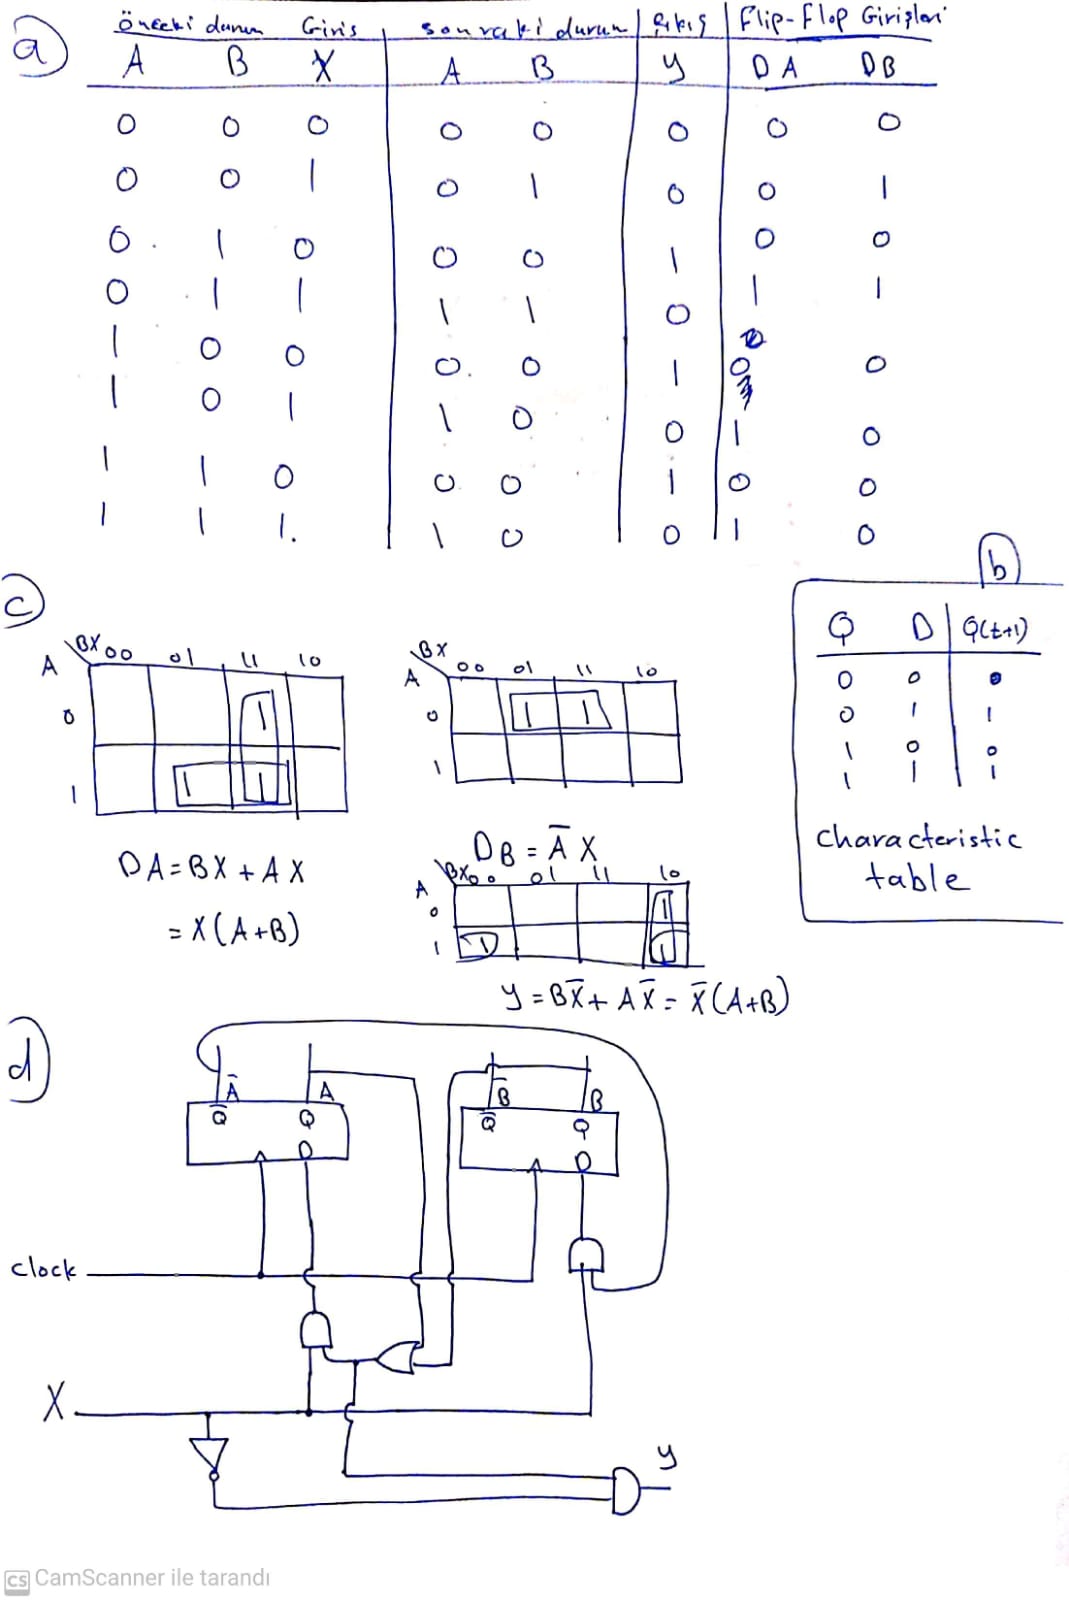 a) önceki durum Giris sonraki durum Çıkış Flip-Flop Girişleri
A B X A B y DA DB
0 0 0 0 0 0 0 0
0 0 1 0 1 0 0 1
0 1 0 0 0 1 0 0
0 1 1 1 1 0 1 1
1 0 0 0 0 1 0 0
1 0 1 1 0 0 1 0
1 1 0 0 0 1 0 0
1 1 1 1 0 0 1 0
b)
Q D Q(t+1)
0 0 0
0 1 1
1 0 0
1 1 1
characteristic
table
c)
A BX 00 01 11 10
0 1
1 1 1
DA = BX + AX
= X(A+B)
A BX 00 01 11 10
0 1 1
1
DB = Ā X
A BX 00 01 11 10
0 1
1 1 1
y = BX̄ + AX̄ = X̄(A+B)
d)
Ā A B̄ B
Q̄ Q Q̄ Q
D D
clock
X
y
CS CamScanner ile tarandı